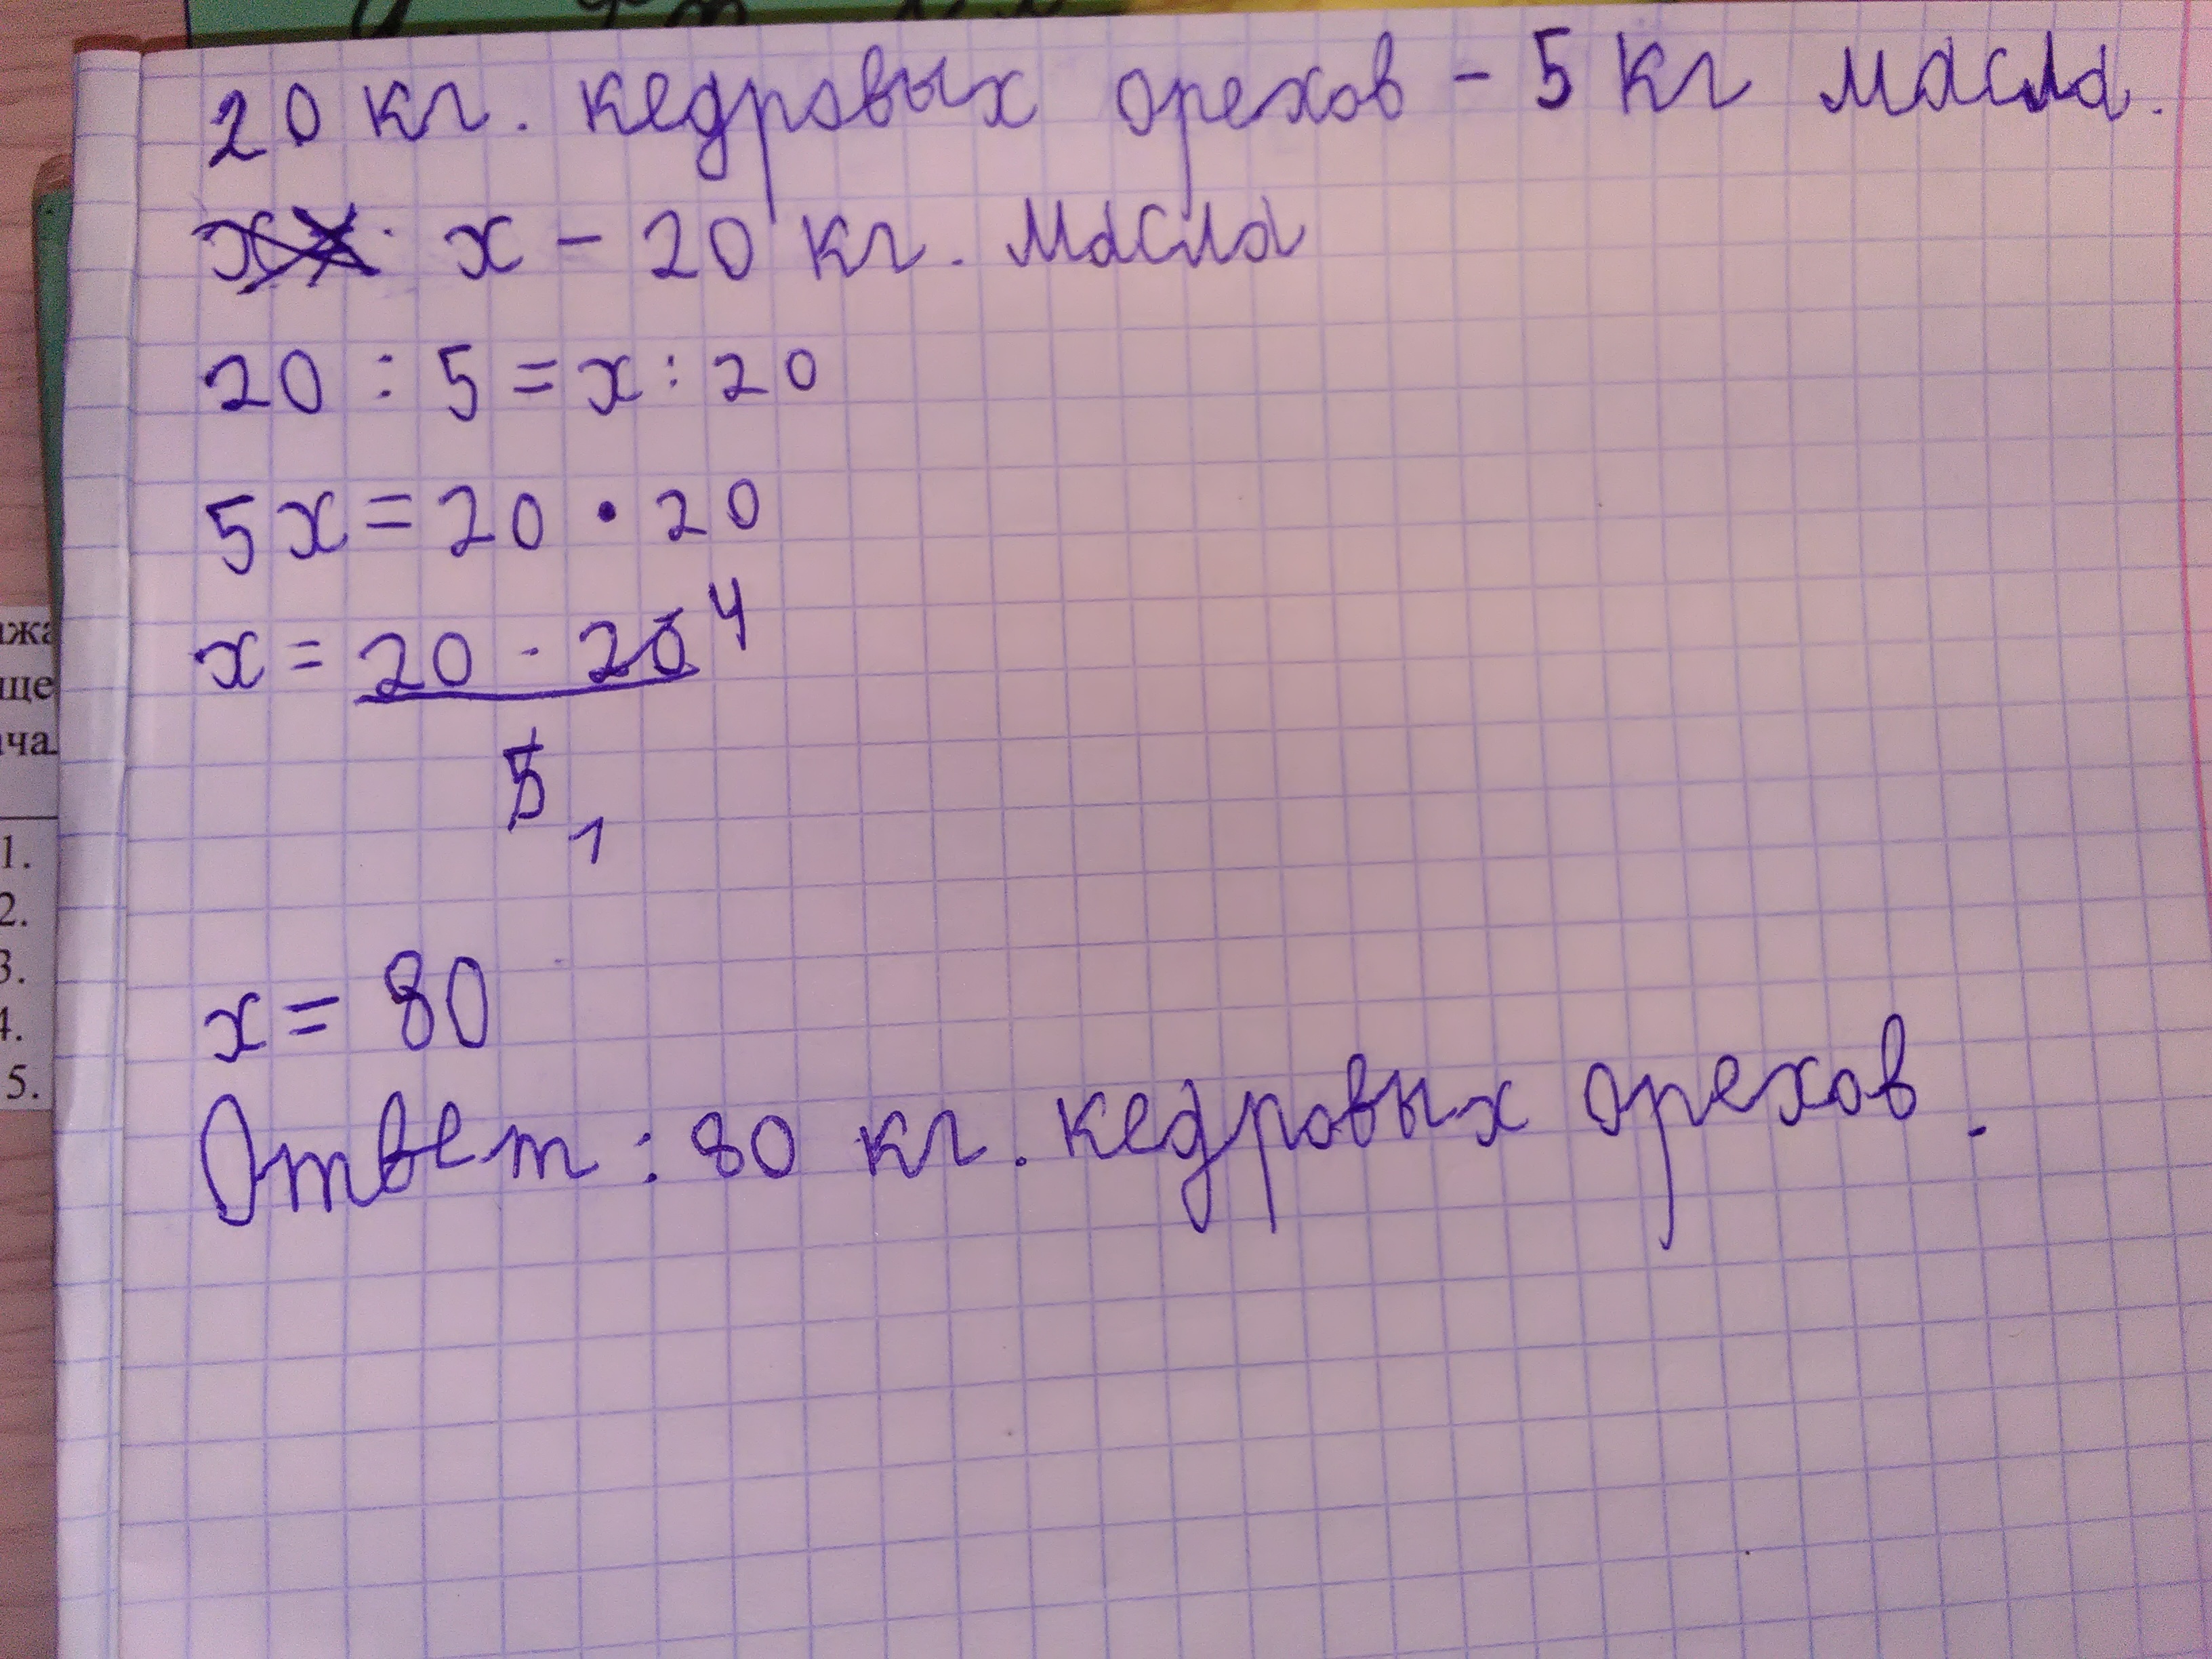 20 кг. кедровых орехов - 5 кг масла.
х - 20 кг. масла
20 : 5 = х : 20
5х = 20 • 20
х = 20 · 20 4
5 1
х = 80
Ответ : 80 кг. кедровых орехов.
1.
2.
3.
4.
5.